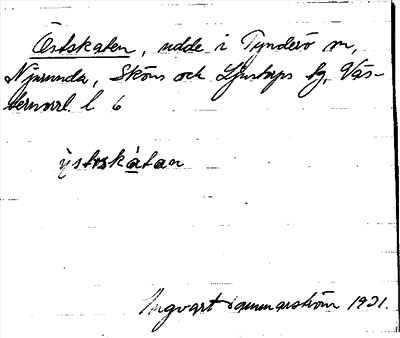 Östskaten, udde i Tynderö sn,
Njurunda, Sköns och Ljustorps tg, Väs-
ternorrl. l. 6
ÿstɷskàtan
Ingvart Hammarström 1921.